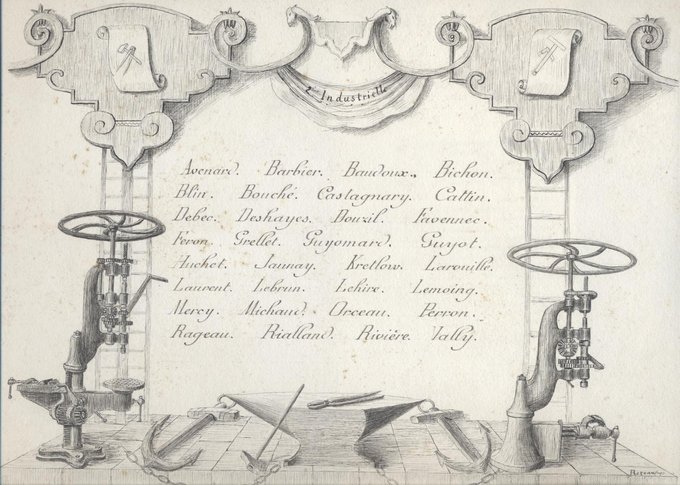 2e Industrielle
Avenard. Barbier. Baudoux. Bichon.
Blin. Bouché. Castagnary. Cattin.
Debec. Deshayes. Douzil. Favennec.
Feron. Grellet. Guyomard. Guyot.
Huchet. Jaunay. Kretlow. Larouille.
Laurent. Lebrun. Lehire. Lemoing.
Mercy. Michaud. Orceau. Perron.
Rageau. Rialland. Rivière. Vally.